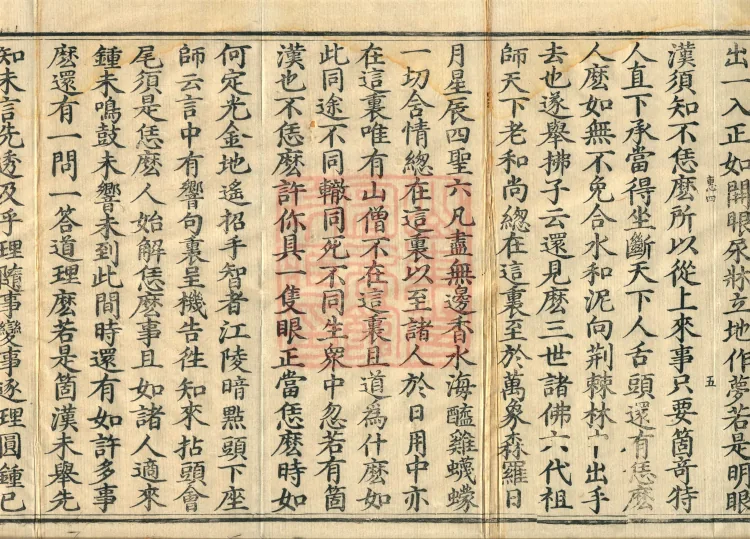 出一入正如開眼尿牀立地作夢若是明眼
惠四
五
漢須知不恁麽所以從上來事只要箇竒特
人直下承當得坐斷天下人舌頭還有恁麽
人麽如無不免合水和泥向荆棘林出手
去也遂舉拂子云還見麽三世諸佛六代祖
師天下老和尚總在這裏至於萬象森羅日
月星辰四聖六凡盡無邊香水海醯雞蠛蠓
一切含情總在這裏以至諸人於日用中亦
在這裏唯有山僧不在這裏且道為什麽如
此同途不同轍同死不同生衆中忽若有箇
漢也不恁麽許你具一隻眼正當恁麽時如
何定光金地遙招手智者江陵暗點頭下座
師云言中有響句裏呈機告徃知來拈頭會
尾須是恁麽人始解恁麽事且如諸人適來
鍾未鳴鼓未響未到此間時還有如許多事
麽還有一問一答道理麽若是箇漢未舉先
知未言先透及乎理隨事變事逐理圓鍾已